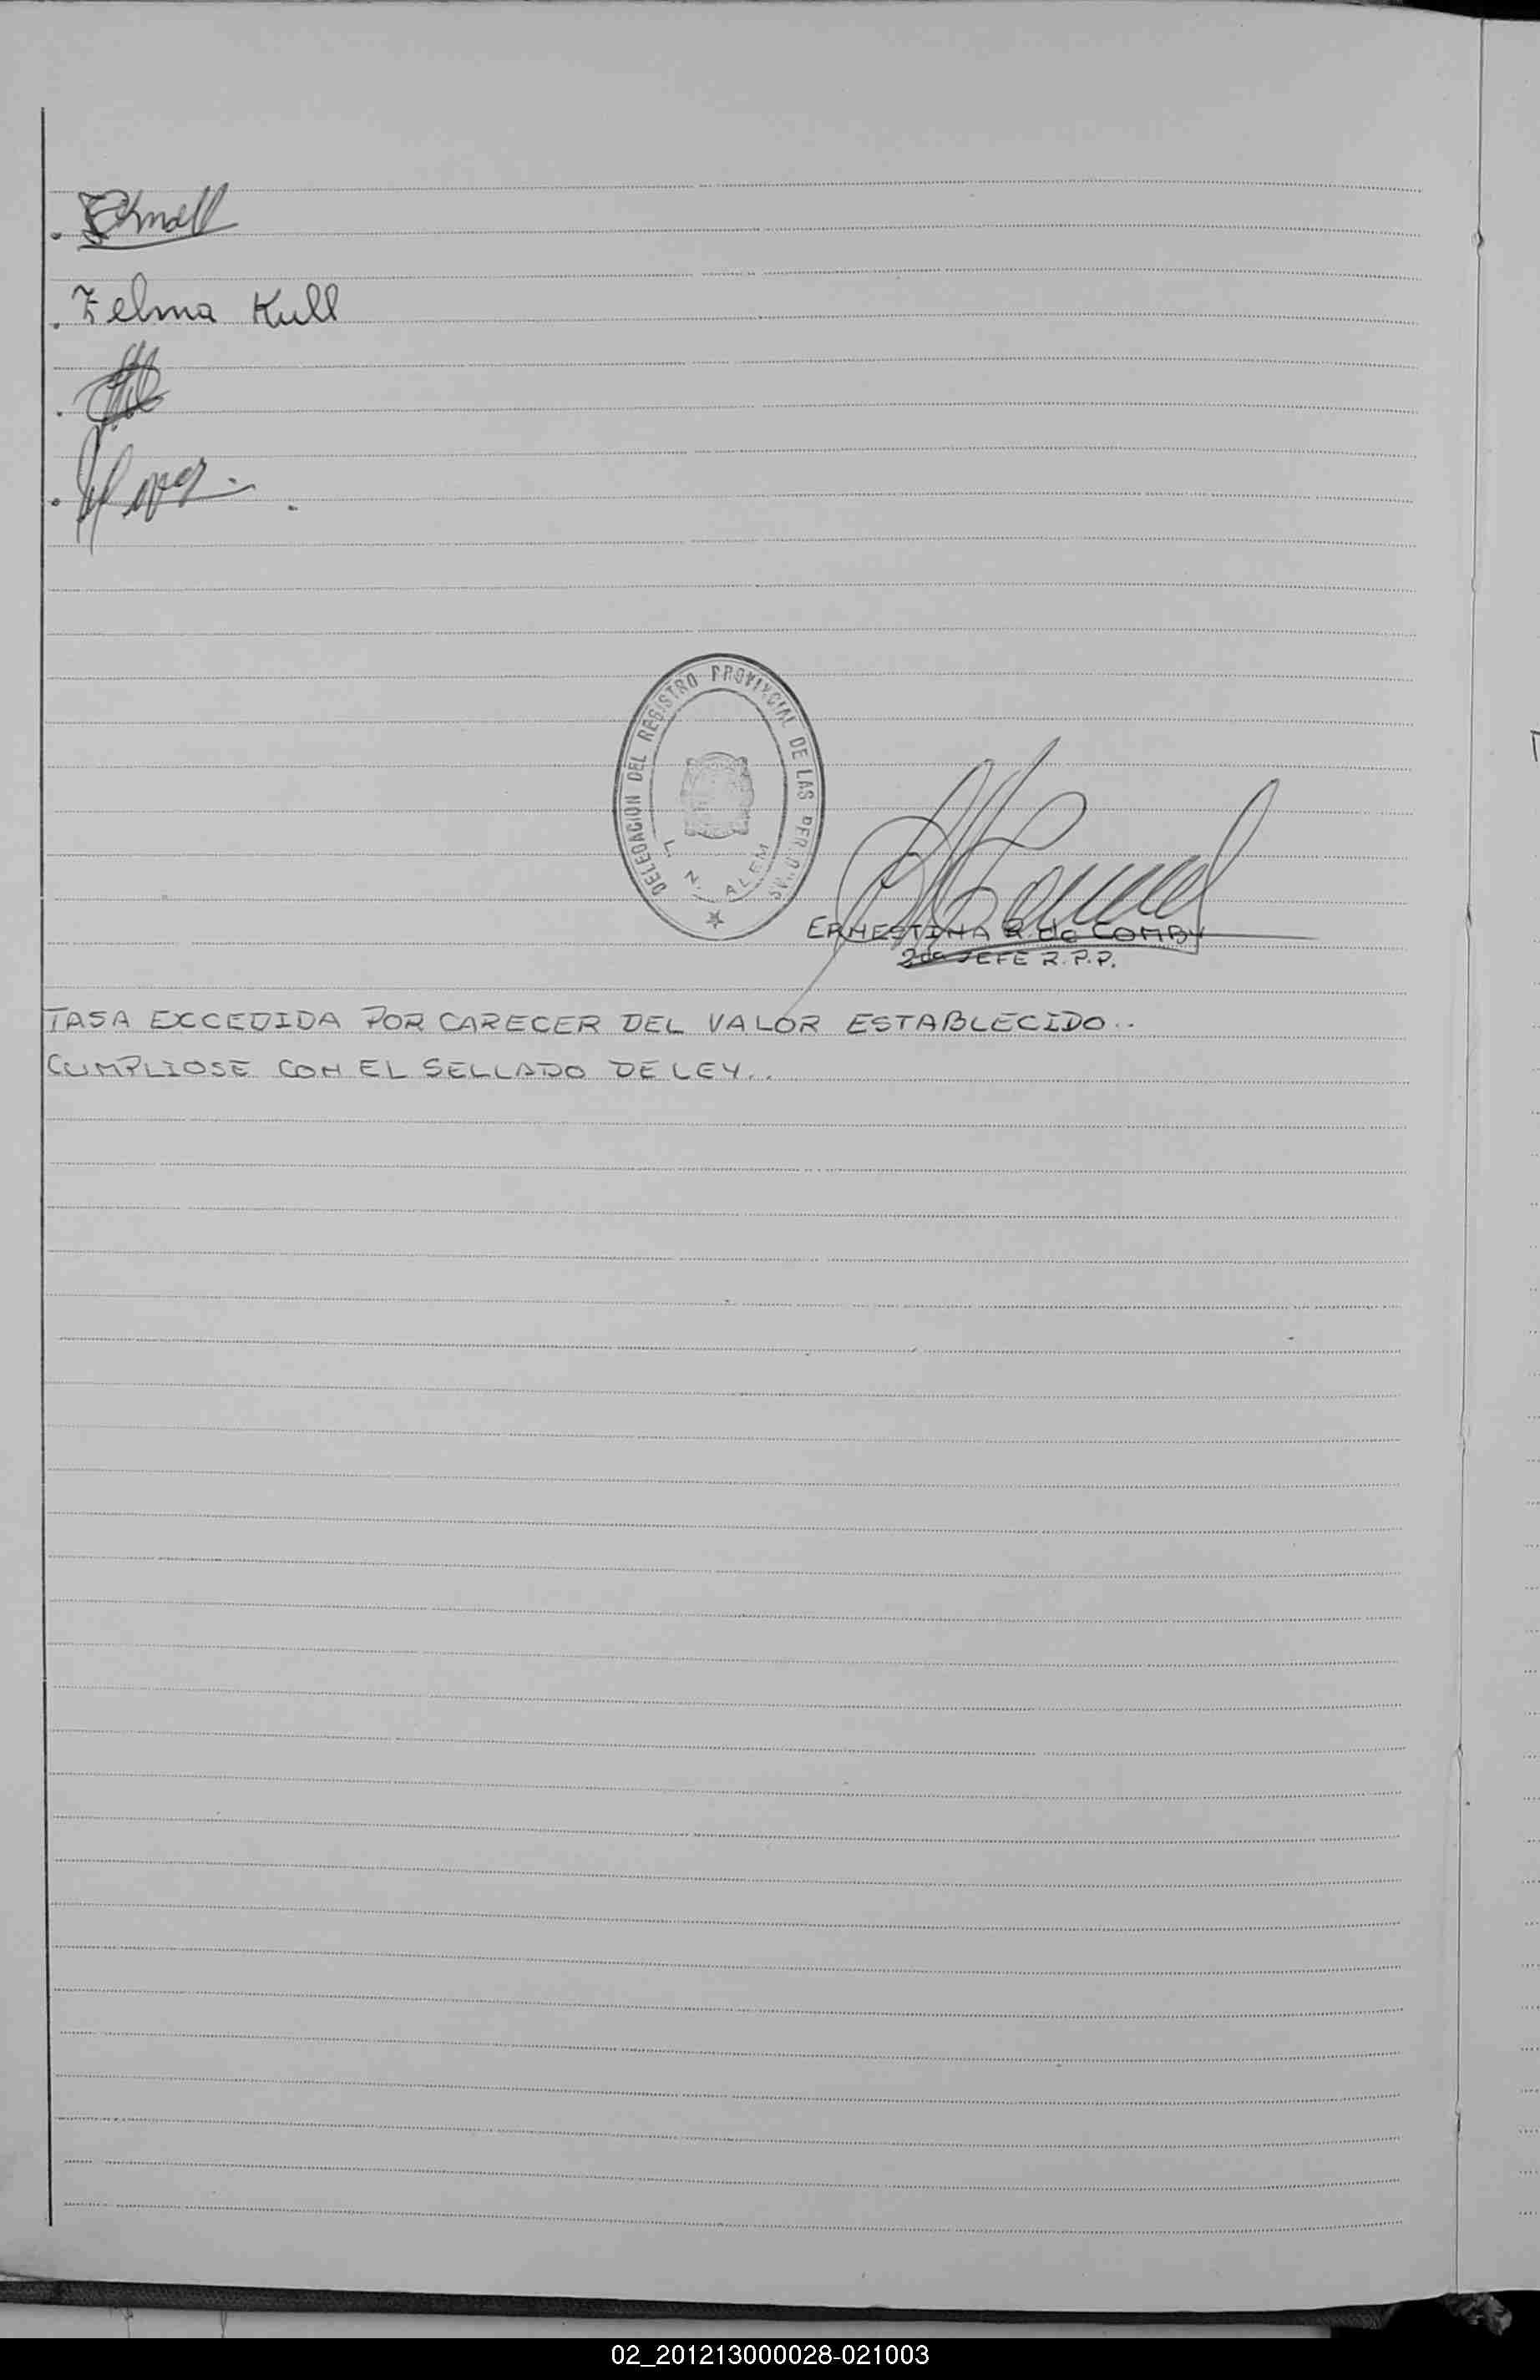 Zelma Kull
DELEGACION DEL REGISTRO PROVINCIAL DE LAS
L. N. ALEM
ERNESTINA R. de COMBY
2da JEFE R.P.P.
TASA EXCEDIDA POR CARECER DEL VALOR ESTABLECIDO..
CUMPLIOSE CON EL SELLADO DE LEY...
02_201213000028-021003